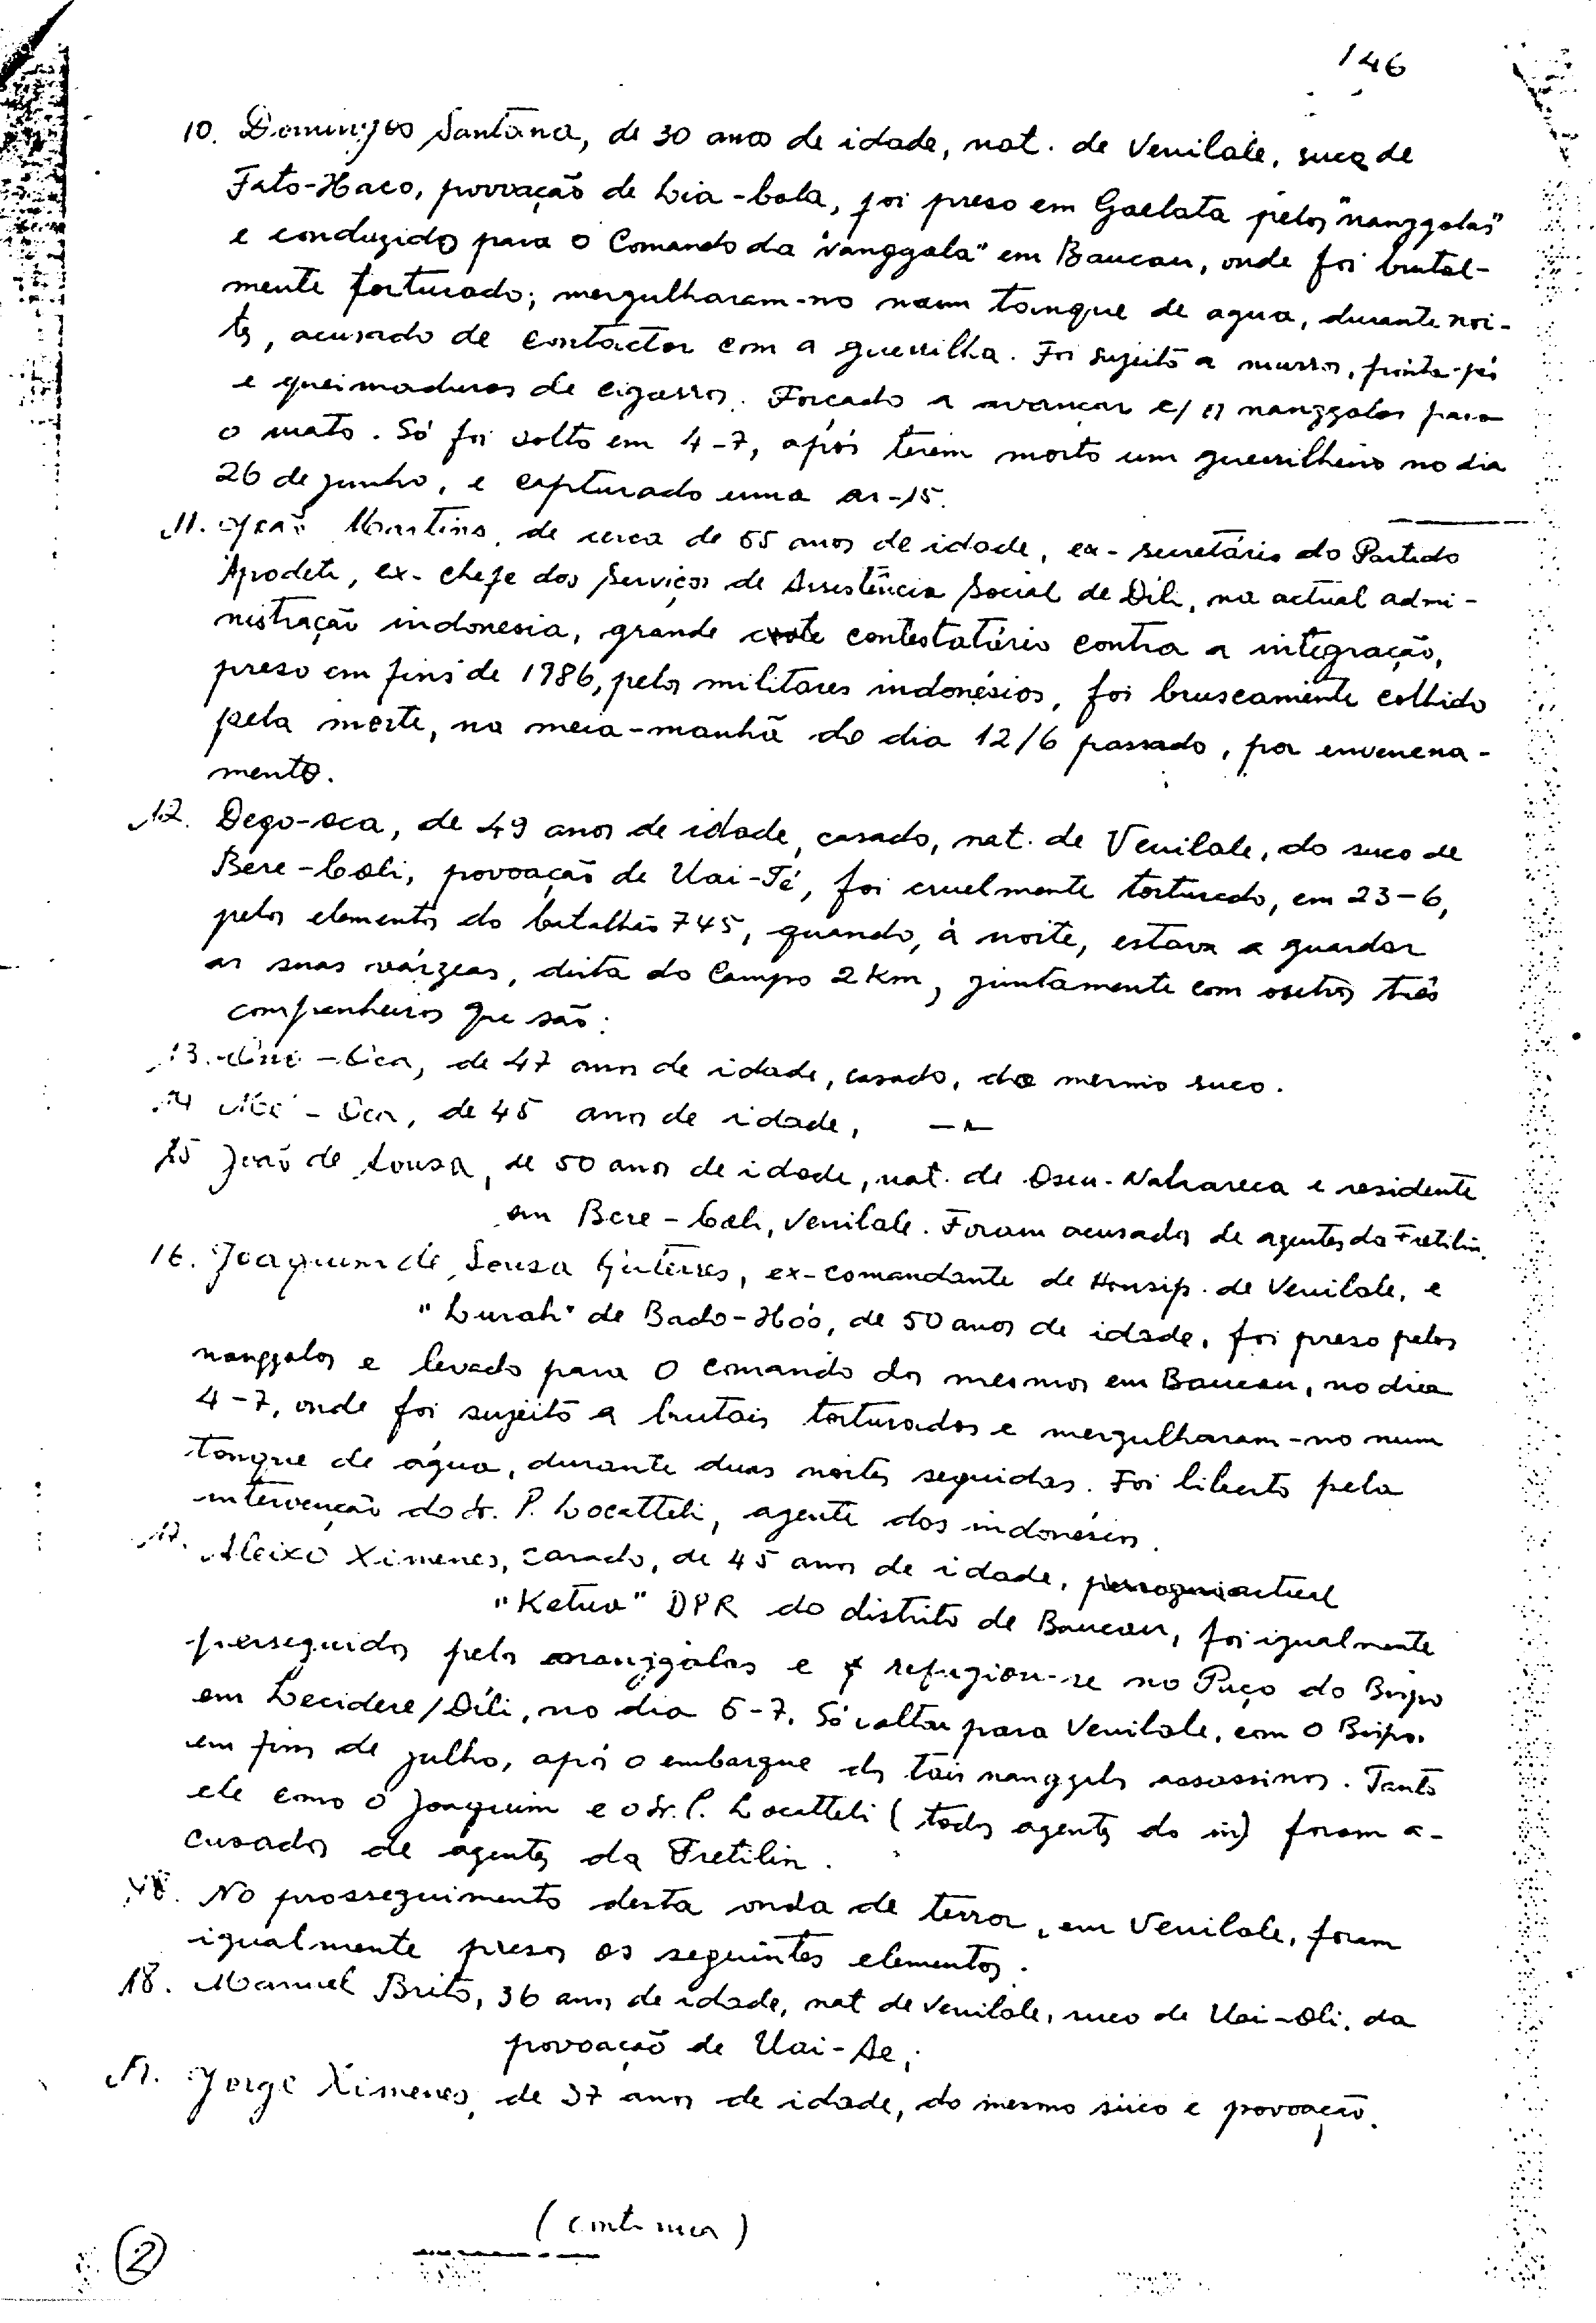 146
10. Domingos Santana, de 30 anos de idade, nat. de Venilale, suco de
Fato-Haco, povoação de Lia-bala, foi preso em Gaelata pelos "nanggalas"
e conduzido para o Comando da "nanggala" em Baucau, onde foi brutal-
mente torturado; mergulharam-no num tanque de agua, durante noi-
tes, acusado de contactar com a guerrilha. Foi sujeito a murros, ponta-pés
e queimaduras de cigarros. Forçado a avançar c/ os nanggalas para
o mato. Só foi solto em 4-7, após terem morto um guerrilheiro no dia
26 de junho, e capturado uma ar-15.
11. João Martins, de cerca de 55 anos de idade, ex-secretário do Partido
Apodeti, ex-chefe dos Serviços de Assistência Social de Dili, na actual admi-
nistração indonesia, grande contestatário contra a integração,
preso em fins de 1986, pelos militares indonésios, foi bruscamente colhido
pela morte, na meia-manhã do dia 12/6 passado, por envenena-
mento.
12. Dego-oca, de 49 anos de idade, casado, nat. de Venilale, do suco de
Bere-Coli, povoação de Uai-Té, foi cruelmente torturado, em 23-6,
pelos elementos do batalhão 745, quando, à noite, estava a guardar
as suas várzeas, dista do Campo 2 km, juntamente com outros três
companheiros que são:
13. -Oca, de 47 anos de idade, casado, do mesmo suco.
14 -Oca, de 45 anos de idade, —"—
15 João de Sousa, de 50 anos de idade, nat. de Ossu-Nahareca e residente
em Bere-Coli, Venilale. Foram acusados de agentes da Fretilin.
16. Joaquim de Sousa Guterres, ex-comandante de Hansip. de Venilale, e
"Lurah" de Bado-Hóo, de 50 anos de idade, foi preso pelos
nanggalas e levado para o comando dos mesmos em Baucau, no dia
4-7, onde foi sujeito a brutais torturados e mergulharam-no num
tanque de água, durante duas noites seguidas. Foi liberto pela
intervenção do Sr. P. Locatteli, agente dos indonésios.
17. Aleixo Ximenes, casado, de 45 anos de idade, actual
"Ketua" DPR do distrito de Baucau, foi igualmente
perseguidos pelos nanggalas e refugiou-se no Paço do Bispo
em Lecidere/Díli, no dia 6-7. Só voltou para Venilale, com o Bispo,
em fins de julho, após o embarque ds tais nanggalas assassinos. Tanto
ele como o Joaquim e o Sr. P. Locatteli (todos agentes do in) foram a-
cusados de agentes da Fretilin.
18. No prosseguimento desta onda de terror, em Venilale, foram
igualmente presos os seguintes elementos.
18. Manuel Brito, 36 anos de idade, nat de Venilale, suco de Uai-Oli, da
povoação de Uai-Ae;
19. Jorge Ximenes, de 37 anos de idade, do mesmo suco e povoação.
(continua)
2